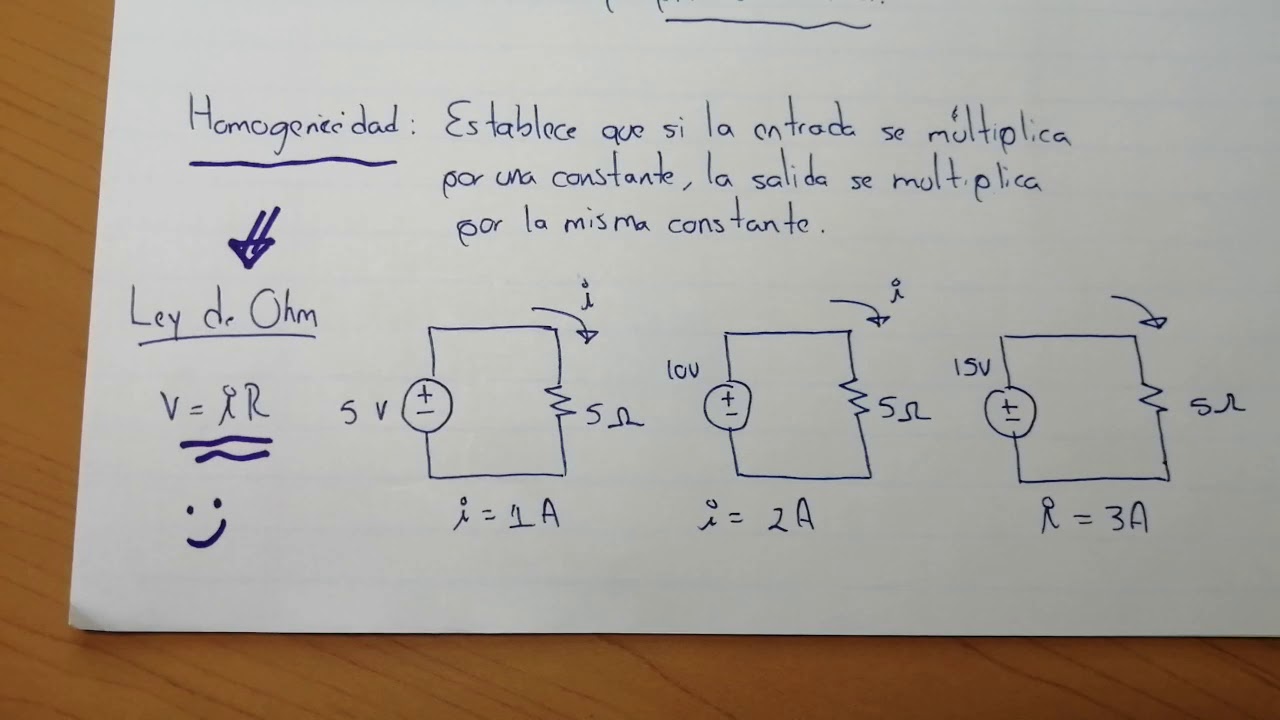 Homogeneidad: Establece que si la entrada se múltiplica
por una constante, la salida se multiplica
por la misma constante.
Ley de Ohm
V = iR
i
5 V
+
-
5Ω
i = 1A
i
10V
+
-
5Ω
i = 2A
15V
+
-
5Ω
i = 3A